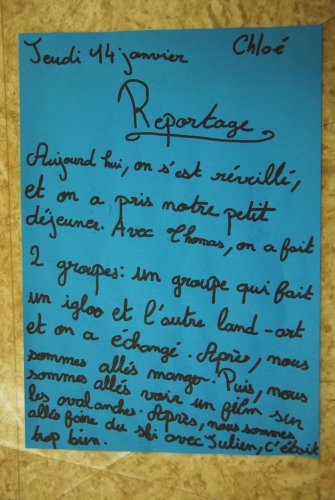 Jeudi 14 janvier Chloé
Reportage
Aujourd'hui, on s'est réveillé,
et on a pris notre petit
déjeuner. Avec Thomas, on a fait
2 groupes: un groupe qui fait
un igloo et l'autre land-art
et on a échangé. Après, nous
sommes allés manger. Puis, nous
sommes allés voir un film sur
les avalanches. Après, nous sommes
allés faire du ski avec Julien, C'était
trop bien.